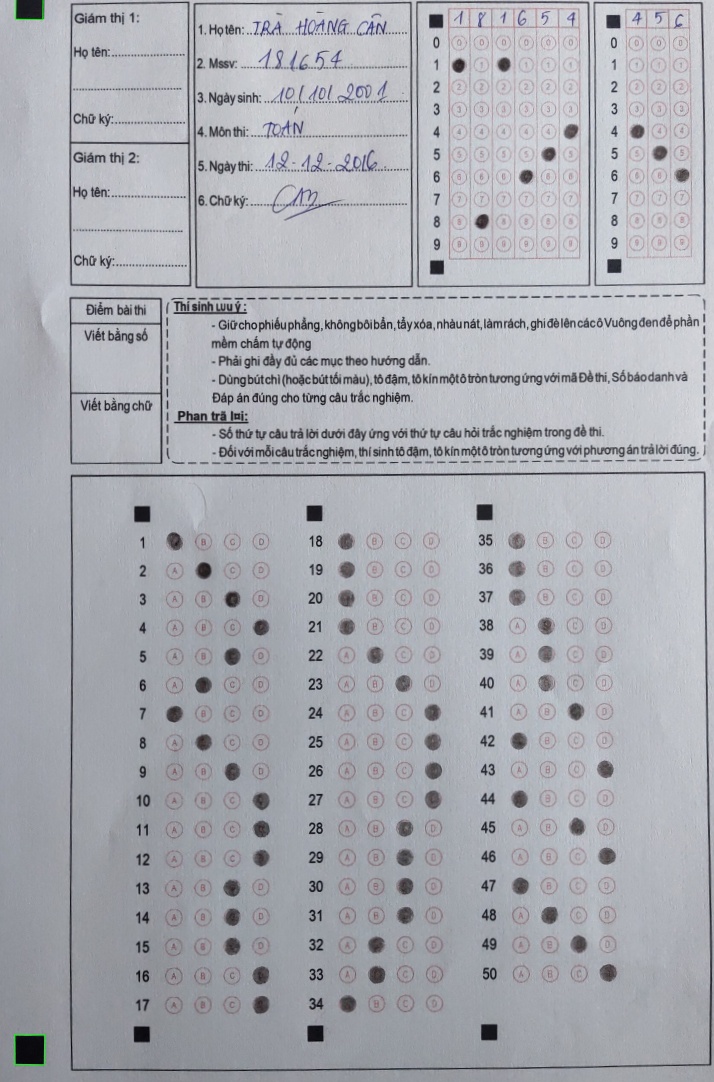 Giám thị 1:
Họ tên:
Chữ ký:
Giám thị 2:
Họ tên:
Chữ ký:
1. Họ tên: TRÀ HOÀNG CẦN
2. Mssv: 181654
3. Ngày sinh: 10/10/2001
4. Môn thi: TOÁN
5. Ngày thi: 12-12-2016
6. Chữ ký:
1 8 1 6 5 4
4 5 6
0
1
2
3
4
5
6
7
8
9
0
1
2
3
4
5
6
7
8
9
Điểm bài thi
Viết bằng số
Viết bằng chữ
Thí sinh lưu ý:
- Giữ cho phiếu phẳng, không bôi bẩn, tẩy xóa, nhàu nát, làm rách, ghi đè lên các ô Vuông đen để phần
mềm chấm tự động
- Phải ghi đầy đủ các mục theo hướng dẫn.
- Dùng bút chì (hoặc bút tối màu), tô đậm, tô kín một ô tròn tương ứng với mã Đề thi, Số báo danh và
Đáp án đúng cho từng câu trắc nghiệm.
Phan trã lại:
- Số thứ tự câu trả lời dưới đây ứng với thứ tự câu hỏi trắc nghiệm trong đề thi.
- Đối với mỗi câu trắc nghiệm, thí sinh tô đậm, tô kín một ô tròn tương ứng với phương án trả lời đúng.
1 B C D
2 A C D
3 A B D
4 A B C
5 A B D
6 A C D
7 B C D
8 A C D
9 A B D
10 A B C
11 A B C
12 A B C
13 A B D
14 A B D
15 A B D
16 A B C
17 A B C
18 B C D
19 B C D
20 B C D
21 B C D
22 A C D
23 A B D
24 A B C
25 A B C
26 A B C
27 A B C
28 A B D
29 A B D
30 A B D
31 A B D
32 A C D
33 A C D
34 B C D
35 B C D
36 B C D
37 B C D
38 A C D
39 A C D
40 A C D
41 A B D
42 B C D
43 A B C
44 B C D
45 A B D
46 A B C
47 B C D
48 A C D
49 A B D
50 A B C